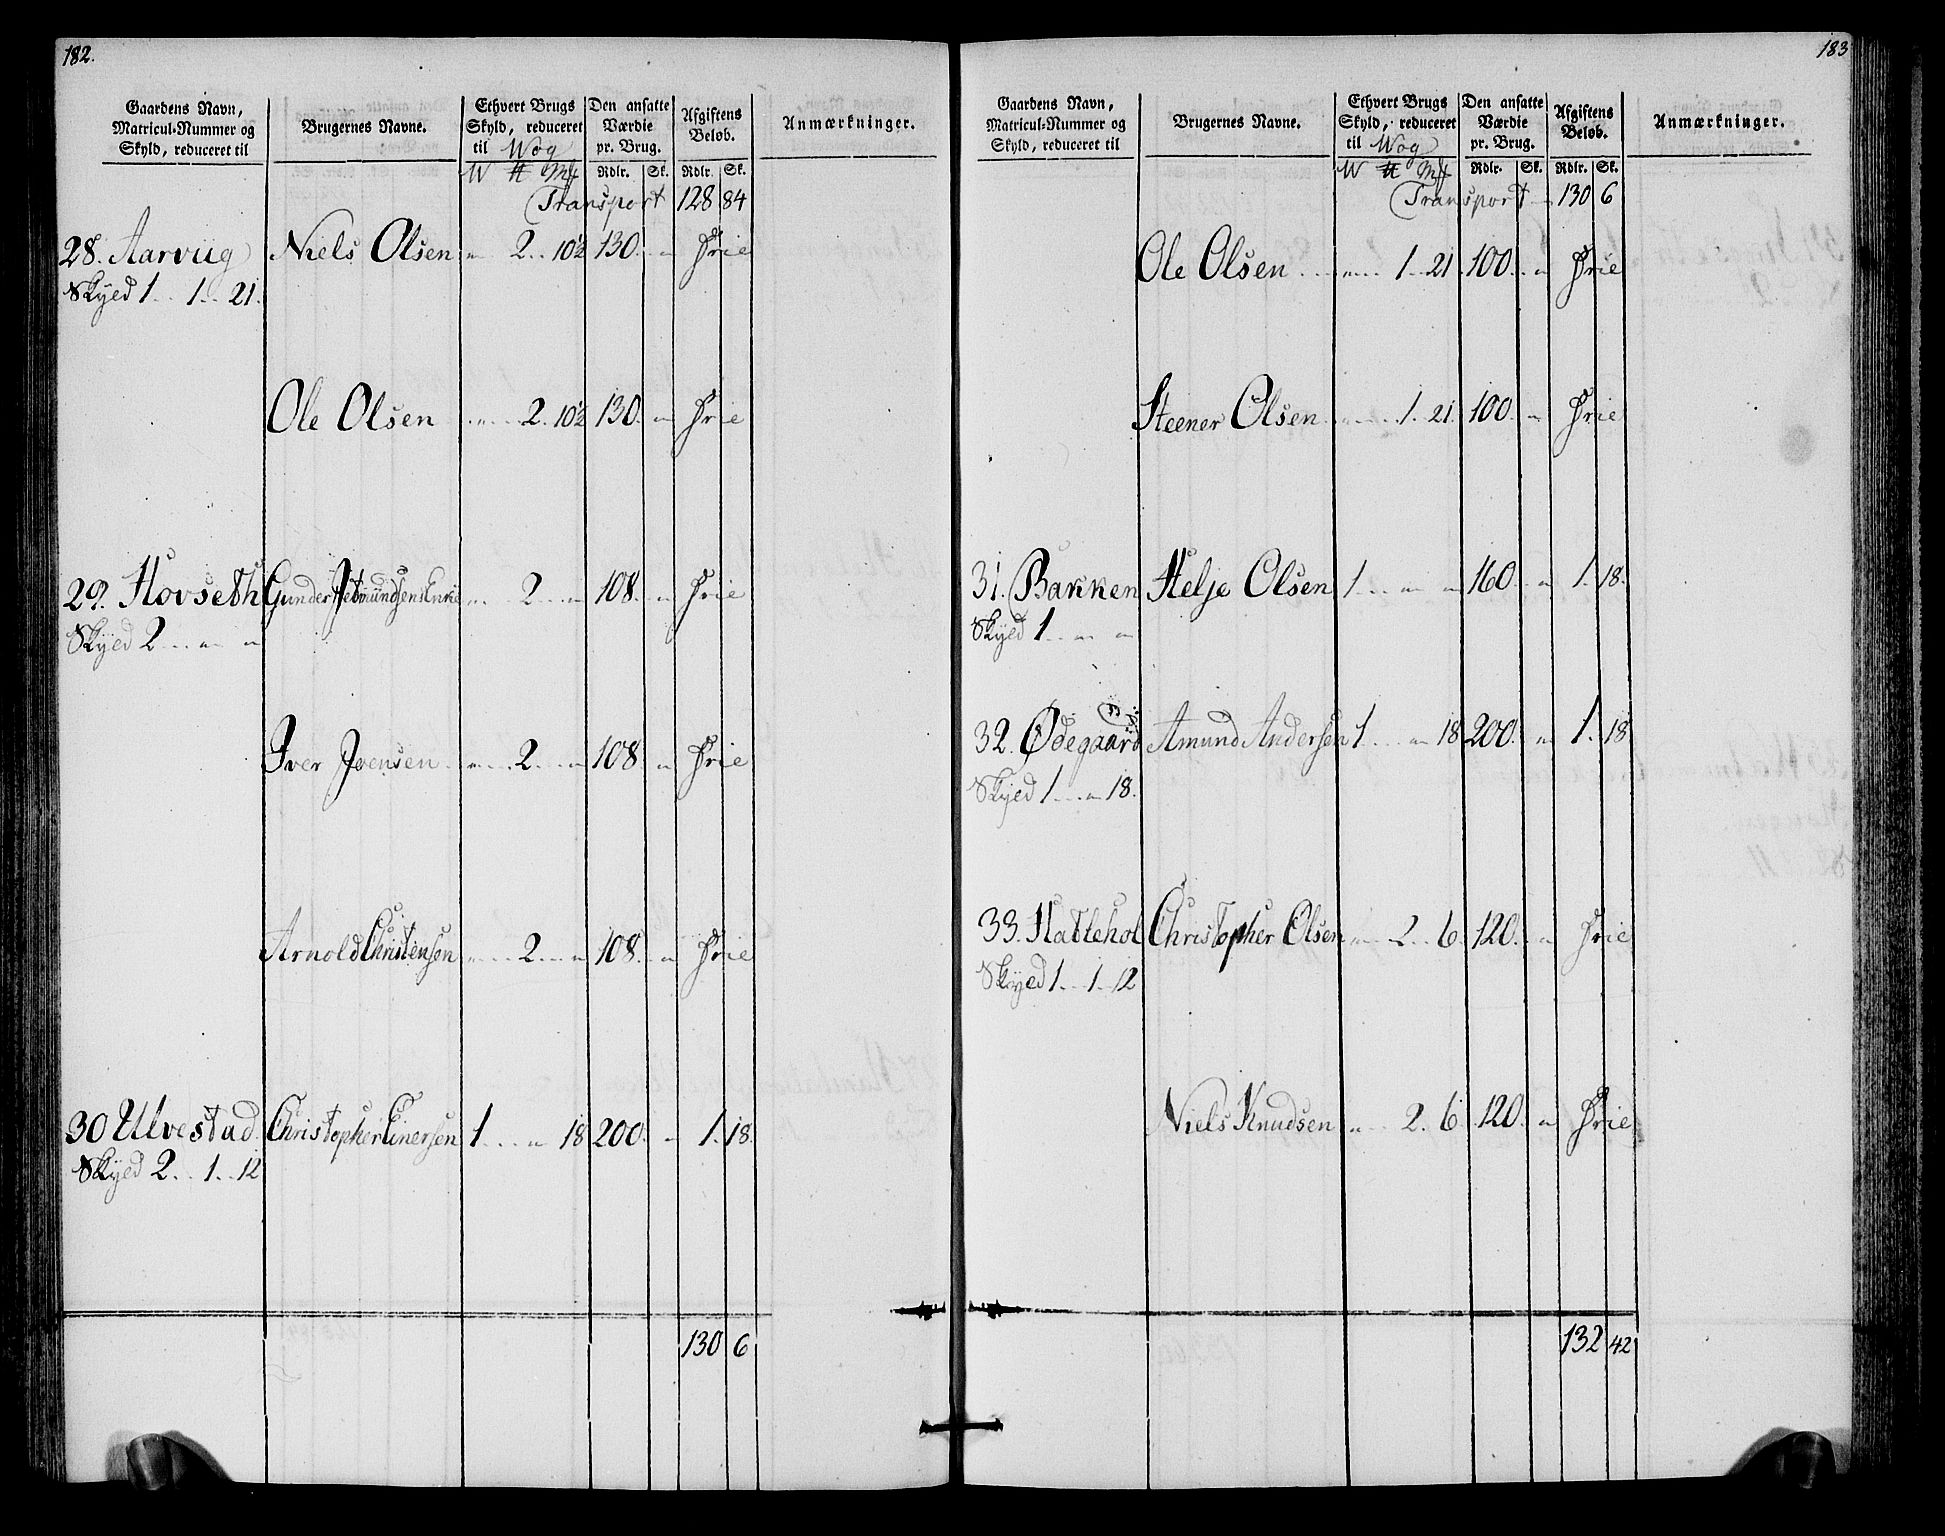 182.
Gaardens Navn, Matricul-Nummer og Skyld, reduceret til
Brugernes Navne.
Ethvert Brugs Skyld, reduceret til Wog
Den ansatte Værdie pr. Brug.
Afgiftens Beløb.
Anmærkninger.
W ℔ Mk Rdlr. Sk. Rdlr. Sk.
Transport 128 84
28. Aarviig Niels Olsen " 2 . . 10½ 130. " Frie
Skyed 1 . . 1 . . 21.
Ole Olsen " 2. 10½ 130. " Frie
29. Hovseth Gunder Enke " 2 . . " 108. " Frie
Skyed 2 . . " "
Iver Joensen " 2 . . " 108. " Frie
Arnold Christensen " 2 . . " 108. " Frie
30 Ulvestad Christopher Einersen 1 . . " 18 200. " 1. 18.
Skyed 2 . . 1 . . 12
130 6
183
Gaardens Navn, Matricul-Nummer og Skyld, reduceret til
Brugernes Navne.
Ethvert Brugs Skyld, reduceret til Wog
Den ansatte Værdie pr. Brug.
Afgiftens Beløb.
Anmærkninger.
W ℔ Mk Rdlr. Sk. Rdlr. Sk.
Transport 130 6
Ole Olsen " 1 . . 21 100. " Frie
Steener Olsen " 1 . . 21. 100. " Frie
31. Bakken Helje Olsen 1 . . " " 160. " 1. 18.
Skyed 1 . . " "
32. Ødegaard Amund Andersen 1 . . " 18 200. " 1. 18
Skyed 1 . . " 18.
33. Hatlehol Christopher Olsen " 2 . . 6. 120. " Frie
Skyed 1 . . 1 . . 12
Niels Knudsen " 2. 6 120. " Frie
132 42